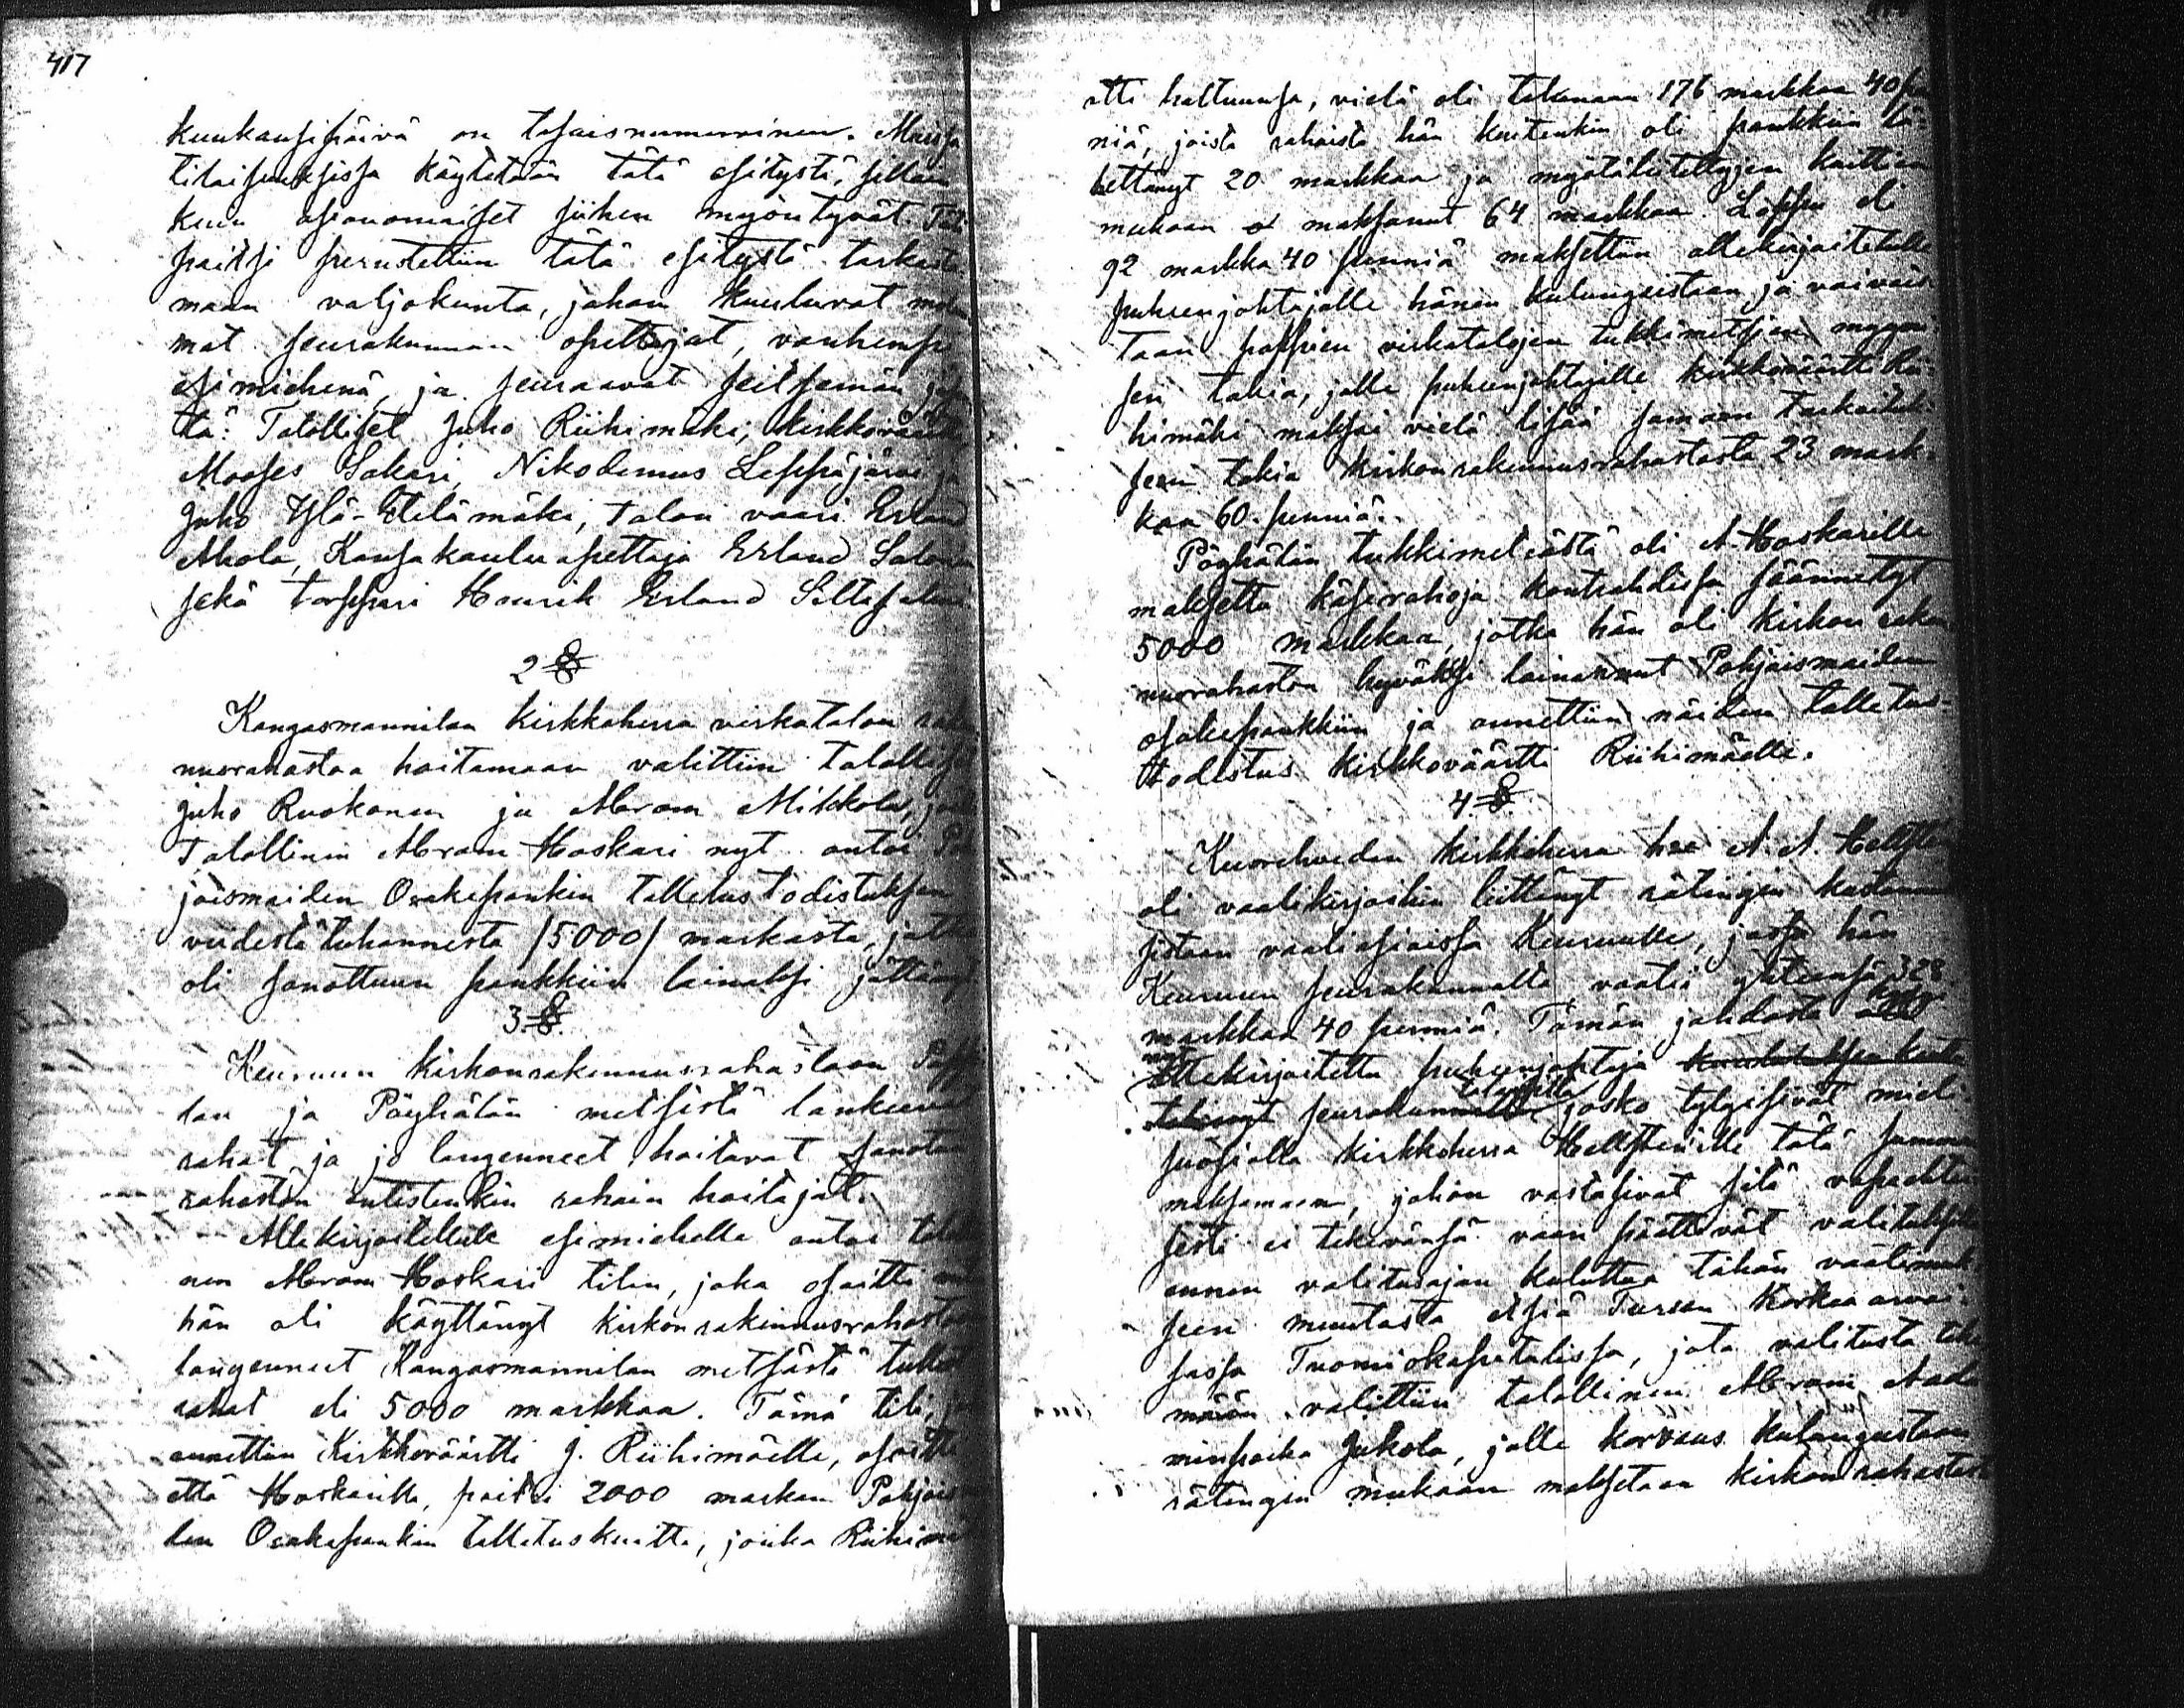 417
kuukausipäivä on tasaisnumeroinen. Muissa
tilaisuuksissa käytetään tätä esitystä, silloin
kuin asianomaiset siihen myöntyvät
paitsi perustettiin tätä esitystä tarkasta
maan valjokunta, johon kuuluvat molem
mat seurakunnan opettajat, vanhempi
esimiehenä, ja seuraavat seitsemän
tä: Talolliset Juho Riihimäki, kirkkoväärti
Mooses Sakari, Nikodemus Leppäjärvi ja
Juho Ylä-Etelämäki, talon vaari Erland
Ahola, Kansakoulu opettaja Erland Salonen
sekä torppari Henrik Erland Siltasalmi
2 §
Kangasmannilan kirkkoherra virkatalon raken
nusrahastoa hoitamaan valittiin talolliset
Juho Ruokonen ja Abram Mikkola,
Talollinen Abram Hoskari nyt antoi Poh
joismaiden Osakepankin talletustodistuksen
viidestä tuhannesta /5000/ markasta, jotka
oli sanottuun pankkiin lainaksi jättänyt
3 §.
Keuruun kirkonrakennusrahastoon
lan ja Pöyhölän metsistä lankeevat
rahat ja jo langenneet hoitavat sanotun
rahaston entistenkin rahain hoitajat.
Allekirjoitetulle esimiehelle antoi talolli
nen Abram Hoskari tilin, joka osoitti
hän oli käyttänyt kirkonrakennusrahastoon
langenneet Kangasmannilan metsästä tulleet
rahat eli 5000 markkaa. Tämä tili,
annettiin Kirkkoväärtti J. Riihimäelle, osoitti
että Hoskarilla, paitsi 2000 markan Pohjois
den Osakepankin talletuskuitti, jonka Riihimä
otti haltuunsa, vielä oli takanaan 176 markkaa 40 pen
niä, joista rahoista hän kuitenkin oli pankkiin lä-
hettänyt 20 markkaa ja myötäliitettyjen kuittien
mukaan maksanut 64 markkaa. Loppu eli
92 markka 40 penniä maksettiin allekirjoitetulle
puheenjohtajalle hänen kulungeistaan ja vaivois
taan pappien virkatalojen tukkimetsien myymi
sen takia, jolle puheenjohtajalle kirkkoväärtti Rii-
himäki maksoi vielä lisää saman tarkoituk-
sen takia kirkonrakennusrahastosta 23 mark-
kaa 60 penniä.
Pöyhölän tukkimetsästä oli A. Hoskarille
maksettu käsirahoja kontrahdissa säännetyt
5000 markkaa, jotka hän oli kirkon raken
nusrahaston hyväksi lainannut Pohjoismaiden
osakepankkiin ja annettiin näiden talletus-
todistus kirkkoväärtti Riihimäelle.
4 §.
Kuoreveden kirkkoherra hra A. A. Hellsten
oli vaalikirjoihin liittänyt rätingin kustannuk
sistaan vaaliasioissa Keuruulle, jossa hän
Keuruun seurakunnalta vaatii yhteensä 328
markkaa 40 penniä. Tämän johdosta
nyt
allekirjoitettu puheenjohtaja
seurakunnalta josko tytyisivät mieli
suosiolla kirkkoherra Hellstenille tätä summaa
maksamaan, johon vastasivat sitä vapaehtoi
sesti ei tekevänsä vaan päättivät valituksella
ennen valitusajan kuluttua tähän vaatimuk
seen muutosta etsiä Turun korkea arvoi-
sassa Tuomiokapitulissa, jota valitusta teke
mään valittiin talollinen Abram Aada
minpoika Jukola, jolle korvaus kulungistaan
rätingin mukaan maksetaan kirkon rahastosta